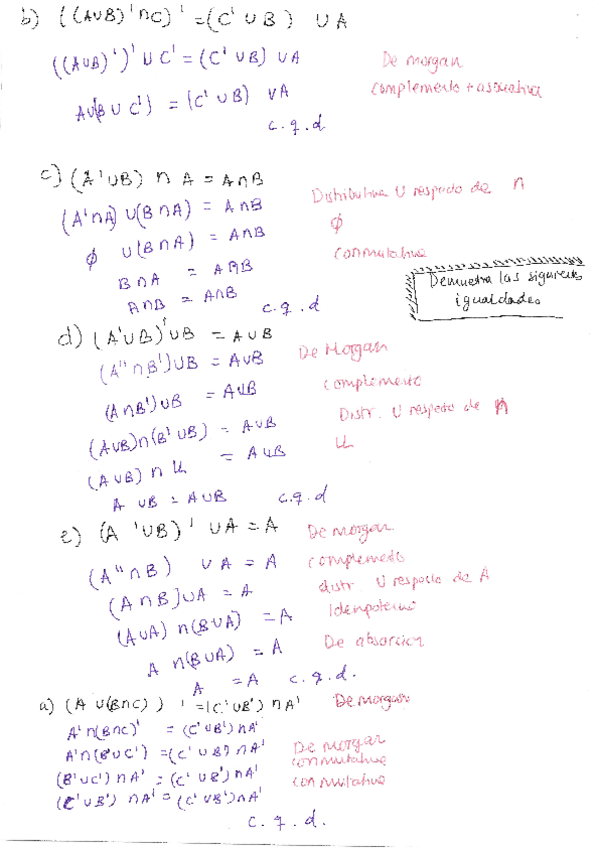 b) ((A∪B)'∩C)' = (C'∪B) ∪A
((A∪B)')'∪C' = (C'∪B) ∪A De morgan
A∪(B∪C') = (C'∪B) ∪A complemento + asociativa
c.q.d
c) (A'∪B) ∩ A = A∩B
(A'∩A) ∪(B∩A) = A∩B Distributiva ∪ respecto de ∩
∅ ∪(B∩A) = A∩B ∅
B∩A = A∩B conmutativa
A∩B = A∩B c.q.d
Demuestra las siguientes
igualdades
d) (A'∪B)'∪B = A∪B
(A''∩B')∪B = A∪B De Morgan
(A∩B')∪B = A∪B complemento
(A∪B)∩(B'∪B) = A∪B Distr. ∪ respecto de ∩
(A∪B) ∩ U = A∪B U
A ∪B = A∪B c.q.d
e) (A'∪B)'∪A = A De morgan
(A''∩B) ∪A = A complemento
(A∩B)∪A = A distr ∪ respecto de A
(A∪A) ∩(B∪A) = A Idenpotencia
A ∩(B∪A) = A De absorcion
A = A c.q.d.
a) (A∪(B∩C))' = (C'∪B')∩A' De morgan
A'∩(B∩C)' = (C'∪B')∩A'
A'∩(B'∪C') = (C'∪B')∩A' De morgan
(B'∪C')∩A' = (C'∪B')∩A' conmutativa
(C'∪B')∩A' = (C'∪B')∩A' conmutativa
c.q.d.